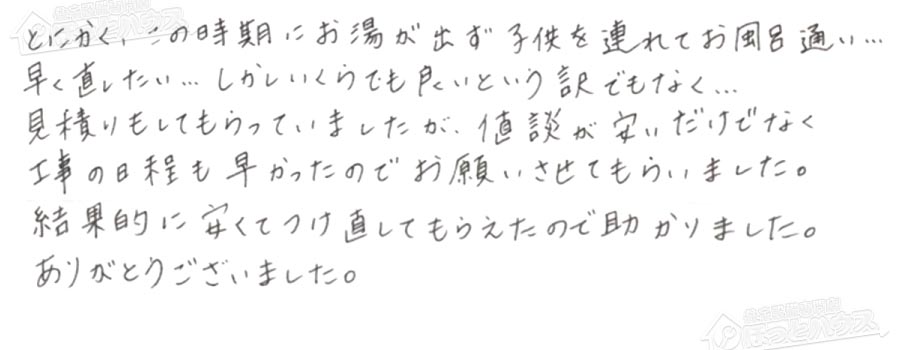 とにかく、この時期にお湯が出ず子供を連れてお風呂通い…
早く直したい…しかしいくらでも良いという訳でもなく…
見積りもしてもらっていましたが、値談が安いだけでなく
工事の日程も早かったのでお願いさせてもらいました。
結果的に安くてつけ直してもらえたので助かりました。
ありがとうございました。
ほっとハウス